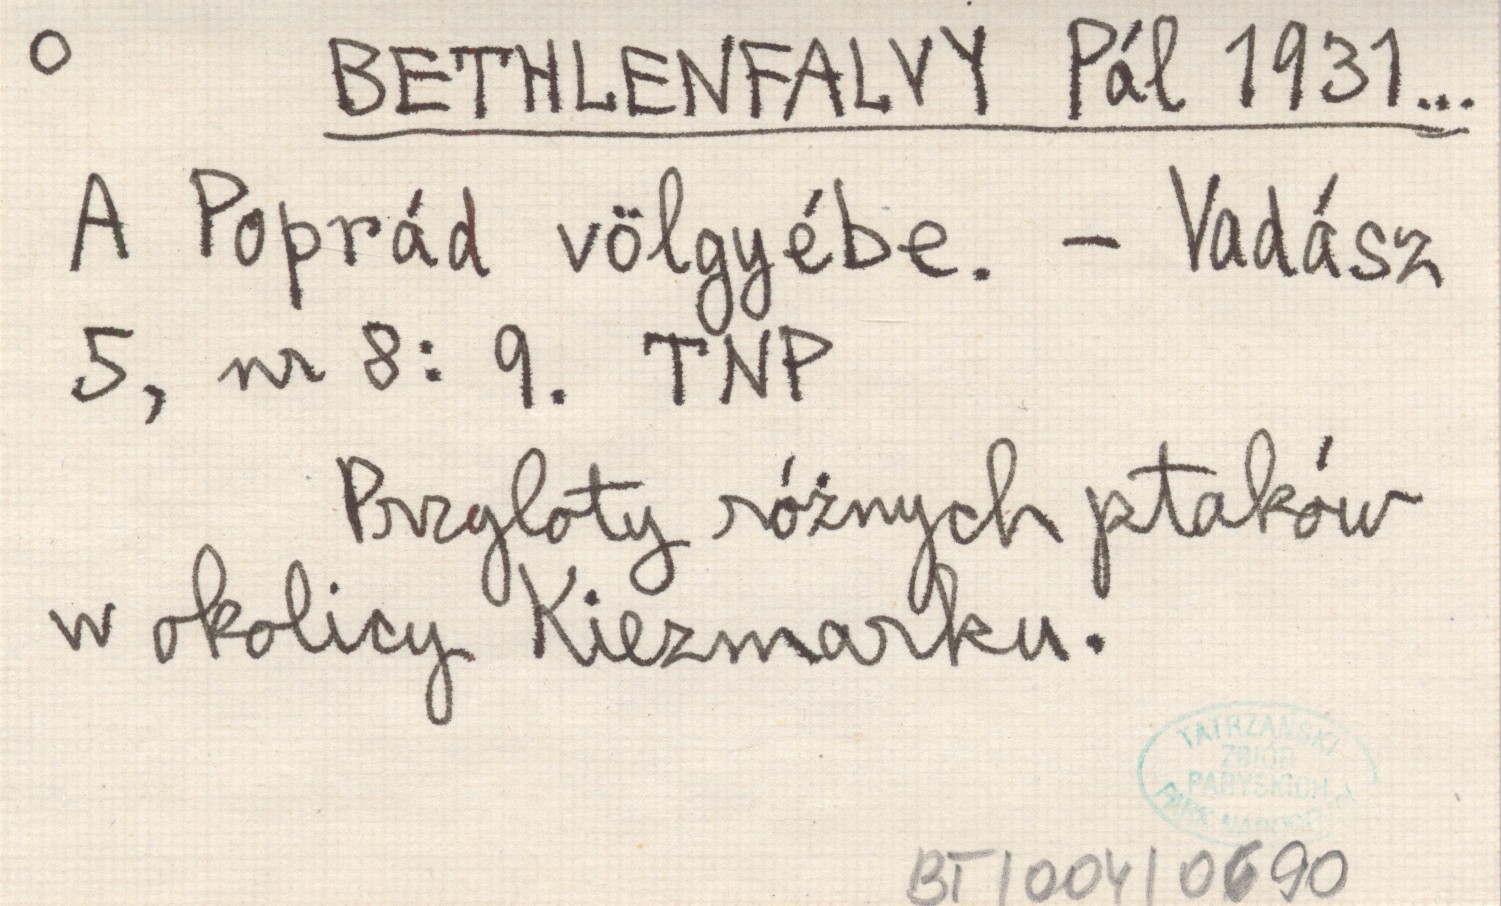 O BETHLENFALVY Pál 1931...
A Poprád völgyébe. – Vadász
5, nr 8: 9. TNP
Przyloty różnych ptaków
w okolicy Kiezmarku.
TATRZAŃSKI
ZBIÓR
PARYSKICH
PARK NARODOWY
BT/004/0690